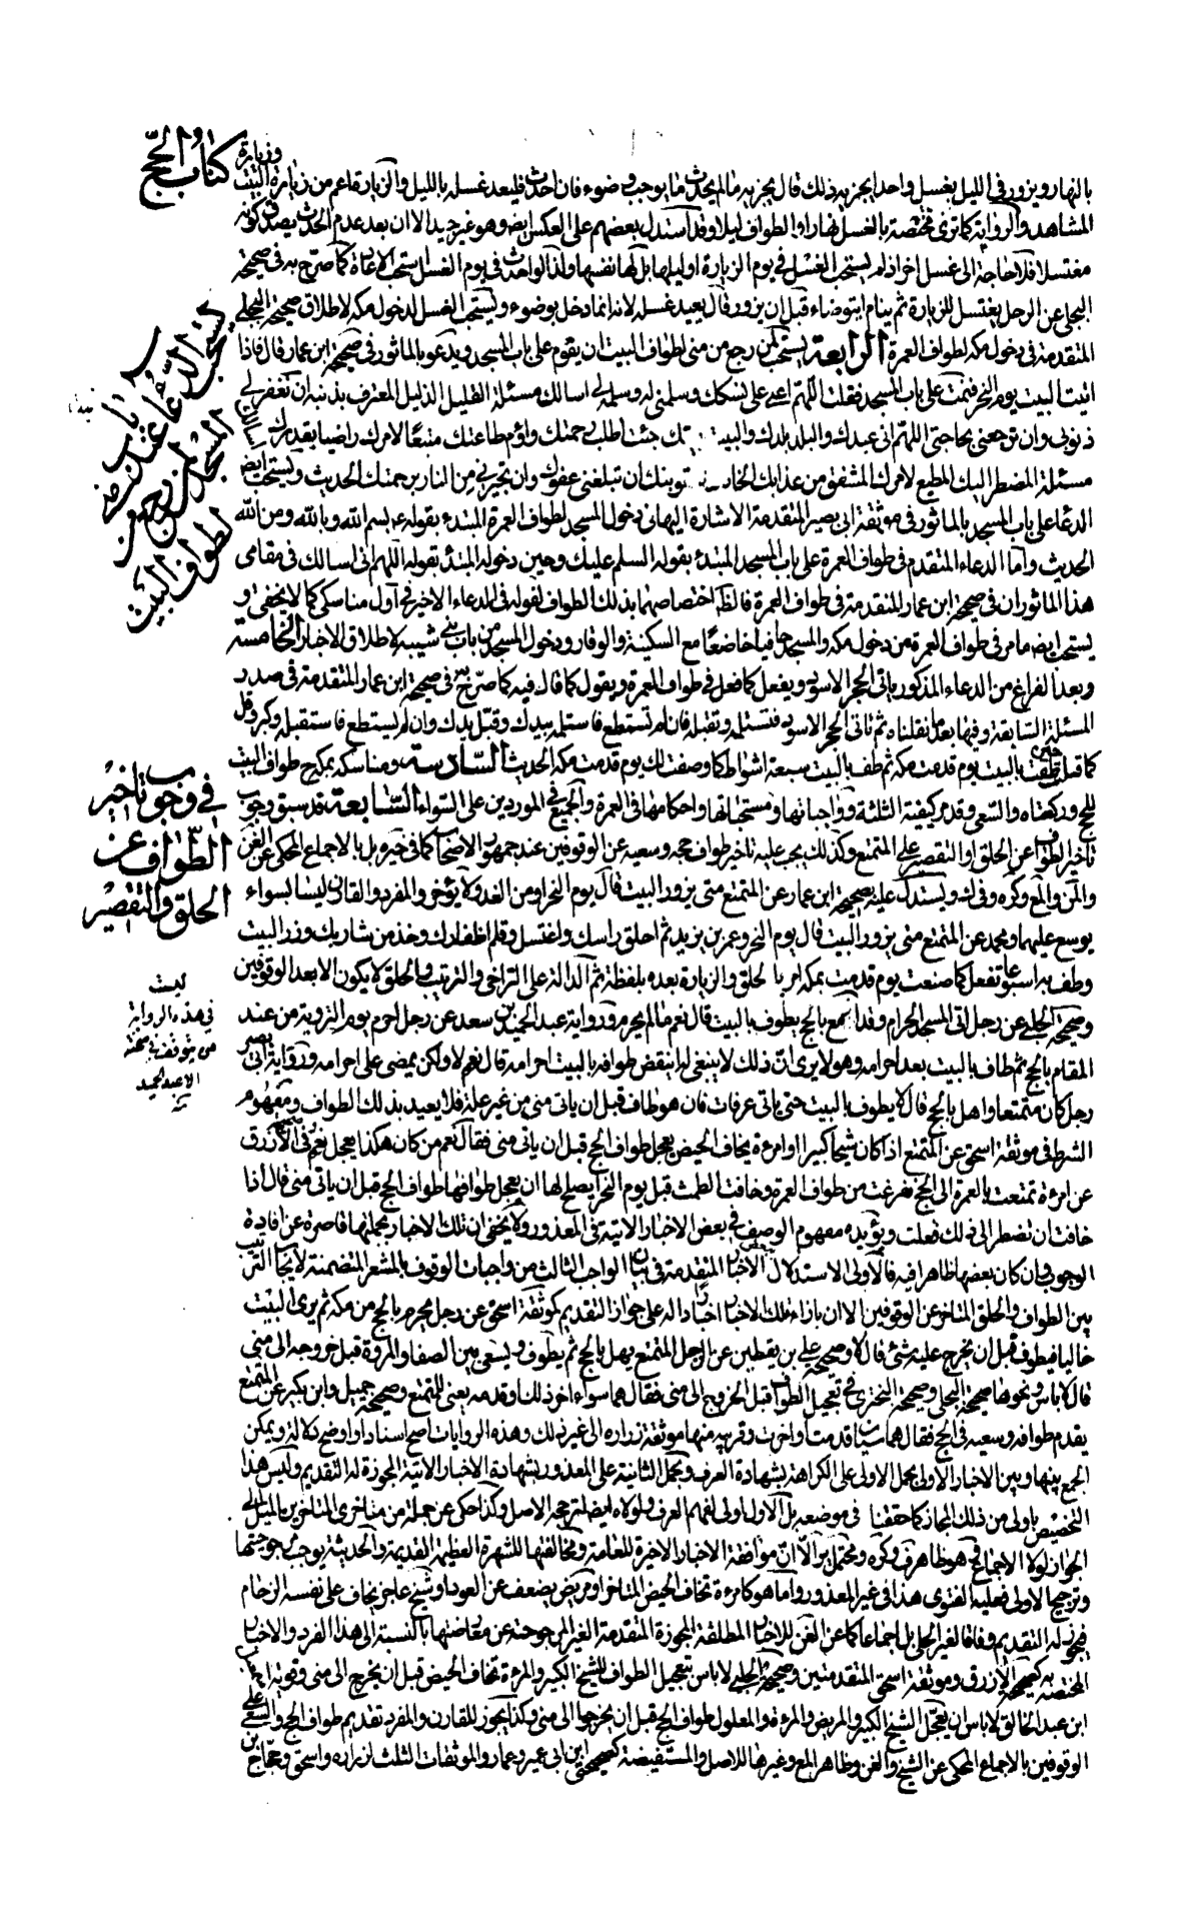 كتاب الحج
بالنهار ويزور في الليل بغسل واحد ايجزيه ذلك قال يجزيه ما لم يحدث ما يوجب وضوء فان احدث فليعد غسله بالليل والزيارة اعم من زيارة البيت وزيارة
المشاهد والرواية كما ترى مختصة بالغسل نهارا والطواف ليلا وقد استدل بعضهم على العكس ايضا وهو غير جيد الا ان بعد عدم الحدث يصدق كونه
مغتسلا فلا حاجة الى غسل اخر اذ لم يستحب الغسل في يوم الزيارة او ليلها بل لها نفسها ولذا لو احدث في يوم الغسل استحب الاعادة كما صرح به في صحيحة
البجلي عن الرجل يغتسل للزيارة ثم ينام ايتوضاء قبل ان يزور قال يعيد غسله لانه انما دخل بوضوء ويستحب الغسل لدخول مكه لاطلاق صحيحة البجلي
المتقدمة في دخول مكه لطواف العمرة الرابعة يستحب لمن رجع من منى لطواف البيت ان يقوم على باب المسجد ويدعو بالماثور في صحيحة ابن عمار قال فاذا
اتيت البيت يوم النحر فقمت على باب المسجد فقلت اللهم اعني على نسكك وسلمني له وسلمه لي اسالك مسئلة العليل الذليل المعترف بذنبه ان تغفر لي
ذنوبي وان ترجعني بحاجتي اللهم اني عبدك والبلد بلدك والبيت بيتك جئت اطلب رحمتك واؤم طاعتك متبعا لامرك راضيا بقدرك اسالك
مسئلة المضطر اليك المطيع لامرك المشفق من عذابك الخائف لعقوبتك ان تبلغني عفوك وان تجيرني من النار برحمتك الحديث ويستحب ايضا
الدعاء على باب المسجد بالماثور في موثقة ابي بصير المتقدمة الاشارة اليها في دخول المسجد لطواف العمرة المبتدء بقوله بسم الله وبالله ومن الله
الحديث واما الدعاء المتقدم في طواف العمرة على باب المسجد المبتدء بقوله السلم عليك وحين دخوله المبتدء بقوله اللهم اني اسالك في مقامي
هذا الماثوران في صحيحة ابن عمار المتقدمة في طواف العمرة فالظاهر اختصاصهما بذلك الطواف لقوله في الدعاء الاخير في اول مناسكي كما لا يخفى و
يستحب ايضا ما مر في طواف العمرة من دخول مكه والمسجد حافيا خاضعا مع السكينة والوقار ودخول المسجد من باب بني شيبه لاطلاق الاخبار الخامسة
وبعد الفراغ من الدعاء المذكور ياتي الحجر الاسود ويفعل كما فعل في طواف العمرة ويقول كما قال فيه كما صرح به في صحيحة ابن عمار المتقدمة في صدر
المسئلة السابقة وفيها بعد ما نقلناه ثم تاتي الحجر الاسود فتستلمه وتقبله فان لم تستطع فاستلمه بيدك وقبل يدك وان لم يستطع فاستقبله وكبر وقل
كما قبل حين طفت بالبيت يوم قدمت مكه ثم طف بالبيت سبعة اشواط كما وصفت لك يوم قدمت مكه الحديث السادسة ومناسكه بمكه طواف البيت
للحج وركعتاه والسعي وقد مر كيفية الثلثة وواجباتها ومستحباتها واحكامها في العمرة والجميع في الموردين على السواء السابعة قد سبق وجوب
تاخير الطواف عن الحلق او التقصير على المتمتع وكذلك يجب عليه تاخير طواف حجه وسعيه عن الوقوفين عند جمهور الاصحاب كما في خيره بل بالاجماع المحكي عن الغن
والمن والمع وكره وفي لك ويستدل عليه بصحيحة ابن عمار عن المتمتع متى يزور البيت قال يوم النحر او من الغد ولا يؤخر والمفرد والقارن ليسا بسواء
يوسع عليهما ومحمد عن المتمتع متى يزور البيت قال يوم النحر وعمر بن يزيد ثم احلق راسك واغتسل وقلم اظفارك وخذ من شاربك وزر البيت
وطف به اسبوعا تفعل كما صنعت يوم قدمت مكه امر بالحلق والزيارة بعده بلفظة ثم الدالة على التراخي والترتيب والحلق لا يكون الا بعد الوقوفين
وصحيحة الحلبي عن رجل اتى المسجد الحرام وقد ازمع بالحج يطوف بالبيت قال نعم ما لم يحرم ورواية عبد الحميد بن سعد عن رجل احرم يوم التروية من عند
المقام بالحج ثم طاف بالبيت بعد احرامه وهو لا يرى ان ذلك لا ينبغي له اينقض طوافه بالبيت احرامه قال نعم لا ولكن يمضي على احرامه ورواية ابي بصير
رجل كان متمتعا واهل بالحج قال لا يطوف بالبيت حتى ياتي عرفات فان هو طاف قبل ان ياتي منى من غير علة فلا يعيد بذلك الطواف ومفهوم
الشرط في موثقة اسحق عن المتمتع اذا كان شيخا كبيرا او امرءة يخاف الحيض يعجل طواف الحج قبل ان ياتي منى فقال نعم من كان هكذا يعجل الازرق
عن امرءة تمتعت بالعمرة الى الحج ففرغت من طواف العمرة وخافت الطمث قبل يوم النحر ايصلح لها ان يعجل طوافها طواف الحج قبل ان ياتي منى قال اذا
خافت ان تضطر الى ذلك فعلت ويؤيده مفهوم الوصف في بعض الاخبار الاتية في المعذور ولا يخفى ان تلك الاخبار بجملتها قاصرة عن افادة
الوجوب وان كان بعضها ظاهرا فيه فالاولى الاستدلال الاخبار المتقدمة في بيان الواجب الثالث من واجبات الوقوف بالمشعر المتضمنة لايجاب الترتيب
بين الطواف والحلق المتاخر عن الوقوفين الا ان بازاء تلك الاخبار اخبارا دالة على جواز التقديم كموثقة اسحق عن رجل يحرم بالحج من مكه ثم يرى البيت
خاليا فيطوف قبل ان يخرج عليه شئ قال لا وصحيحة علي بن يقطين عن الرجل المتمتع يهل بالحج ثم يطوف ويسعى بين الصفا والمروة قبل خروجه الى منى
قال لا باس ونحوها صحيحة البجلي وصحيحة البختري في تعجيل الطواف قبل الخروج الى منى فقال هما سواء اخر ذلك او قدمه يعني للمتمتع وصحيحة جميل وابن بكير عن المتمتع
يقدم طوافه وسعيه في الحج فقال هما سيان قدمت او اخرت وقريبه منها موثقة زرارة الى غير ذلك وهذه الروايات اصح اسنادا واوضح دلالة ويمكن
الجمع بينها وبين الاخبار الاولى بحمل الاولى على الكراهة بشهادة العرف وبحمل الثانية على المعذور بشهادة الاخبار الاتية المجوزة له التقديم وليس هذا
التخصيص باولى من ذلك المجاز كما حققنا في موضعه بل الاول اولى لفهم العرف ولولاه ايضا لترجحه الاصل وكذا حكى عن جملة من متاخري المتاخرين الميل الى
الجواز لولا الاجماع وهو ظاهر في وكره ومحتمل ير الا ان موافقة الاخبار الاخيرة للعامة ومخالفتها للشهرة العظيمة القديمة والحديثة يوجب مرجوحيتها
وترجيح الاولى فعليه الفتوى هذا في غير المعذور واما هو كامرءة تخاف الحيض المتاخر او مريض يضعف عن العود او شيخ عاجز يخاف على نفسه الزحام
فيجوز له التقديم وفاقا لغير الحلي بل اجماعا كما عن الغن للاخبار المطلقة المجوزة المتقدمة الغير المرجوحة عن معارضتها بالنسبة الى هذا الفرد والاخبار
المختصة به كصحيحة الازرق وموثقة اسحق المتقدمتين وصحيحة الحلبي لا باس بتعجيل الطواف للشيخ الكبير والمرءة تخاف الحيض قبل ان يخرج الى منى وقوية اسمعيل
ابن عبد الخالق لا باس ان يعجل الشيخ الكبير والمريض والمرءة والمعلول طواف الحج قبل ان يخرجوا الى منى وكذا يجوز للقارن والمفرد تقديم طواف الحج والسعي على
الوقوفين بالاجماع المحكي عن الشيخ والغن وظاهر المع وغيرها للاصل والمستفيضة كصحيحتي ابن ابي عمير وعمار والموثقات الثلث لزراره واسحق وحجاج بن
يستحب الدعاء عند باب
المسجد لمن رجع من منى
لطواف البيت
في وجوب تاخير
الطواف عن
الحلق والتقصير
ليست
في هذه الرواية
من يتوقف في صحته
الا عبد الحميد
منه